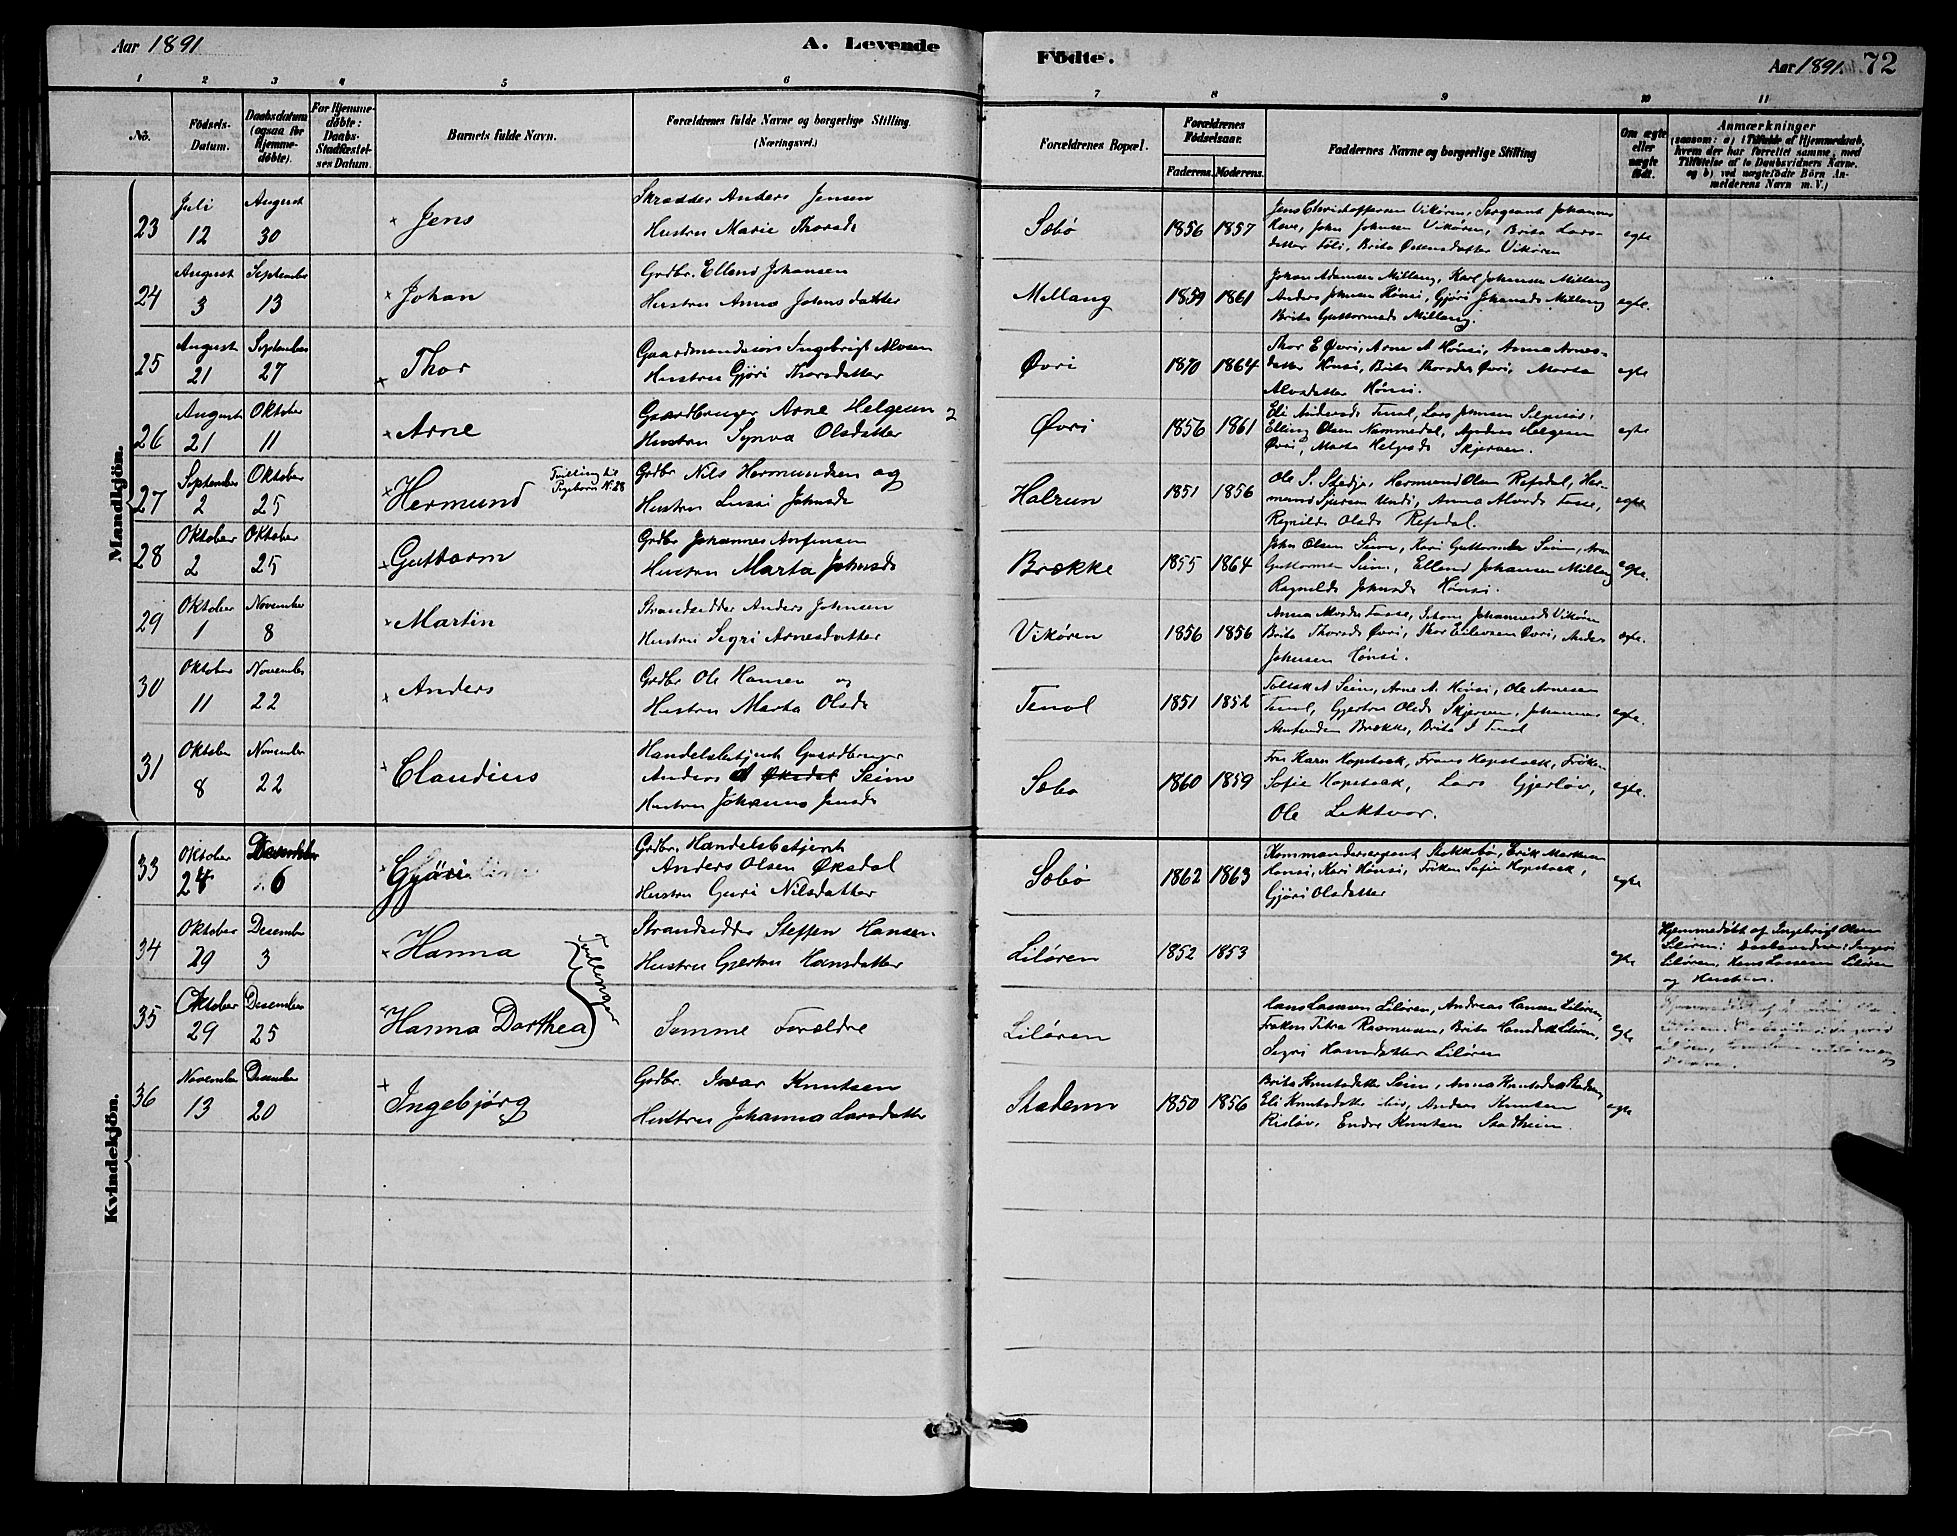 Aar 1891
A. Levende
Födte.
Aar 1891.
72
1 2 3 4 5 6 7 8 9 10 11
No.
Födsels-Datum.
Daabsdatum (ogsaa for Hjemme-döbte).
For Hjemme-döbte: Daabs-Stadfæstel-ses Datum.
Barnets fulde Navn.
Forældrenes fulde Navne og borgerlige Stilling
(Næringsvei.)
Forældrenes Bopæl.
Forældrenes Födselsaar.
Faderens. Moderens.
Faddernes Navne og borgerlige Stilling
Om ægte eller uægte födt.
Anmærkninger
(saasom: a) i Tilfælde af Hjemmedaab, hvem der har forrettet samme, med Tilföielse af to Daabsvidners Navne, og b) ved uægtefödte Börn An-melderens Navn m. V.)
Mandkjön.
23
Juli 12
August 30
Jens
Skrædder Anders Jensen
Hustru Marie Thorsdr
Sæbö
1856 1857
Jens Christoffersen Vikören, Sergeant Johannes
Hove, John Johnsen Vikören, Brita Lars-
datter Föli, Brita Östensdatter Vikören
egte
24
August 3
September 13
Johan
Grdbr. Ellend Johansen
Hustru Anna Johnsdatter
Millang
1859 1861
Johan Adamsen Millang, Karl Johansen Millang
Anders Johnsen Hönsi, Gjöri Johansds Millang
Brita Guttormsds Millang.
egte.
25
August 21
September 27
Thor
Gaardmandssön Ingebrigt Alvsen
Hustru Gjöri Thorsdatter
Övri
1870 1864
Thor E Övri, Arne A Hönsi, Anna Arnes-
datter Hönsi, Brita Thorsds Övri, Marta
Alvsdatter Hönsi.
egte
26
August 21
Oktober 11
Arne
Gaardbruger Arne Helgesen
Hustru Synva Olsdatter
Övri
1856 1861
Eli Andersds Tenol, Lars Johnsen
Elling Olsen Nammedal, Anders Helgesen
Övri, Marta Helgesds Skjerven.
egte
27
September 2
Oktober 25
Hermund
Tvilling til Ingeborg N. 28
Grdbr Nils Hermundsen og
Hustru Lussi Johnsds
Halrun
1851 1856
Ole S. Stedje, Hermund Olsen Refsdal, Her-
mund Sjursen Undi, Anna Alvsds Tosse,
Ragnilde Olsds Refsdal.
egte
28
Oktober 2
Oktober 25
Guttorm
Grdbr Johannes Amfinsen
Hustru Marta Johnsds
Brække
1855 1864
John Olsen Seim, Kari Guttormsds Seim, Arne
Guttormsen Seim, Ellend Johansen Millang
Ragnilde Johnsds Hönsi.
egte.
29
Oktober 1
November 8
Martin
Strandsidder Anders Johnsen
Hustru Sigri Arnesdatter
Vikören
1856 1856
Anna Alvsds Tosse, Johannesds Vikören
Brita Thorsds Övri, Thor Eilevsen Övri, Anders
Johnsen Hönsi.
egte.
30
Oktober 11
November 22
Anders
Grdbr Ole Hansen og
Hustru Marta Olsds
Tenol
1851 1852
A Seim, Arne A. Hönsi, Ole Arnesen
Tenol, Gjertru Olsds Skjerven, Johannes
Amfinsen Brække, Brita I Tenol
egte.
31
Oktober 8
November 22
Claudius
Handelsbetjent Gaardbruger
Anders A Öksdal Seim
Hustru Johanna Jensds
Sæbo
1860 1859
Fru Karen Hopstock, Frans Hopstock, Fröken
Sofie Hopstock, Lars Gjerlöv,
Ole Lektvor.
egte.
Kvindekjön.
33
Oktober 24
Desember 6
Gjöri
Grdbr. Handelsbetjent
Anders Olsen Öksdal
Hustru Guri Nilsdatter
Sæbö
1862 1863
Kommandersergent Stokkebö, Erik Markusen
Hönsi, Kari Hönsi, Fröken Sofie Hopstock,
Gjöri Olsdatter
egte
34
Oktober 29
Desember 3
Hanna
Tvillinger
Strandsidder Steffen Hansen.
Hustru Gjertru Hansdatter
Lilören
1852 1853
egte
Hjemmedöbt af Ingebrigt Olsen
Lilören: Daabsvidner: Ingeri
Lilören, Hans Larssen Lilören
og Hustru.
35
Oktober 29
Desember 25
Hanna Dorthea
Samme Forældre
Lilören
Hans Larssen Lilören, Andreas Hansen Lilören,
Fröken Petra Rasmussen, Brita Hansdatt Lilören,
Sigri Hansdatter Lilören
egte
36
November 13
Desember 20
Ingebjörg
Grdbr. Ivar Knutsen
Hustru Johanna Larsdatter
Stadeim
1850 1856
Brita Knutsdatter Seim, Anna Knutsdatter Stadheim
Eli Knutsdatter ibid, Anders Knutsen
Rislöv, Endre Knutsen Stadheim.
egte